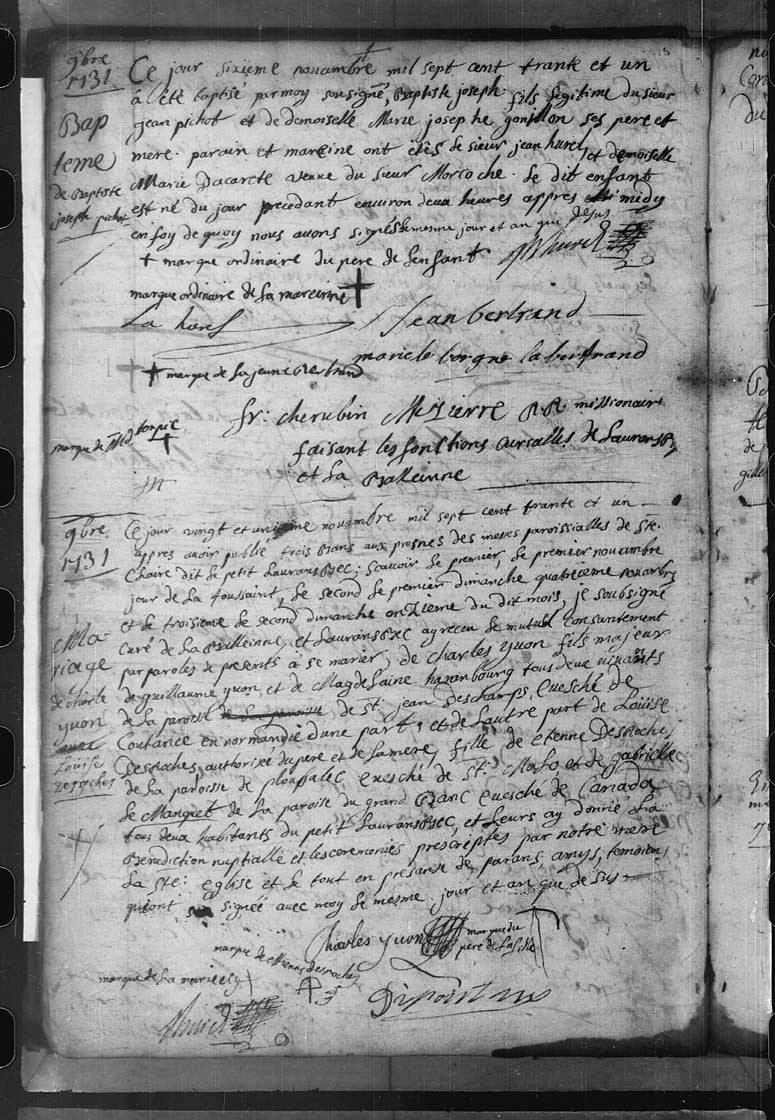 9bre
1731
Bap
teme
de Baptiste
joseph pichot
Ce jour sixieme novambre mil sept cent trante et un
â été baptisé par moy soussigné, Baptiste joseph fils legitime du sieur
jean pichot et de demoiselle Marie josephe gonillon ses pere et
mere. parain et mareine ont étés le sieur jean hurel, et demoiselle
Marie Dacarete veuve du sieur Morcoche. le dit enfant
est né du jour precedant environ deux heures appres midy
en foy de quoy nous avons signés le mesme jour et an que desus
+ marque ordinaire du pere de lenfant
marque ordinaire de la mareinne +
Jean bertrand
marie le borgne la bertrand
+ marque de la jeune Bertrand
fr: cherubin
millionaire
faisant les fonctions curialles de Lauranbec
et La Balleinne
9bre
1731
Ma
riage
de charle
yvon
Louise
desroches
Ce jour vingt et unieme novambre mil sept cent trante et un
appres avoir publié trois Bans aux prosnes des messes paroissialles de Ste.
Claire dit le petit Lauranbec; scavoir le premier, le premier novambre
jour de la toussaint, le second le premier dimanche quatrieme novambre
et le troisieme le second dimanche onzieme du dit mois, je soubsigné
curé de La Balleinne, et Lauranbec ay receu le mutuel consantement
par paroles de presents â se marier, de charles yvon fils majeur
de guillaume yvon, et de Magdelaine hazanbourg tous deux vivants
de la paroisse de la paroisse de St. jean Deschamps, Evesché de
Coutance en normandie d'une part, et de L'autre part de Louise
Desroches, authorisée du pere et de la mere, fille de etienne Desroches
de la paroisse de ploubalec Evesché de St. Malo et de gabrielle
le Manquet de la paroisse du grand Banc Evesché de Canada
tous deux habitants du petit Lauranbec, et leurs ay donné La
Benediction nuptialle et les ceremonies prescriptes par notre mere
La Ste: eglise et le tout en presance de parans, amys, temoins
qui ont signée avec moy le mesme jour et an que de sus
Charles yvon
marque du
pere de la fille
marque de etienne desroches
marque de la mariée